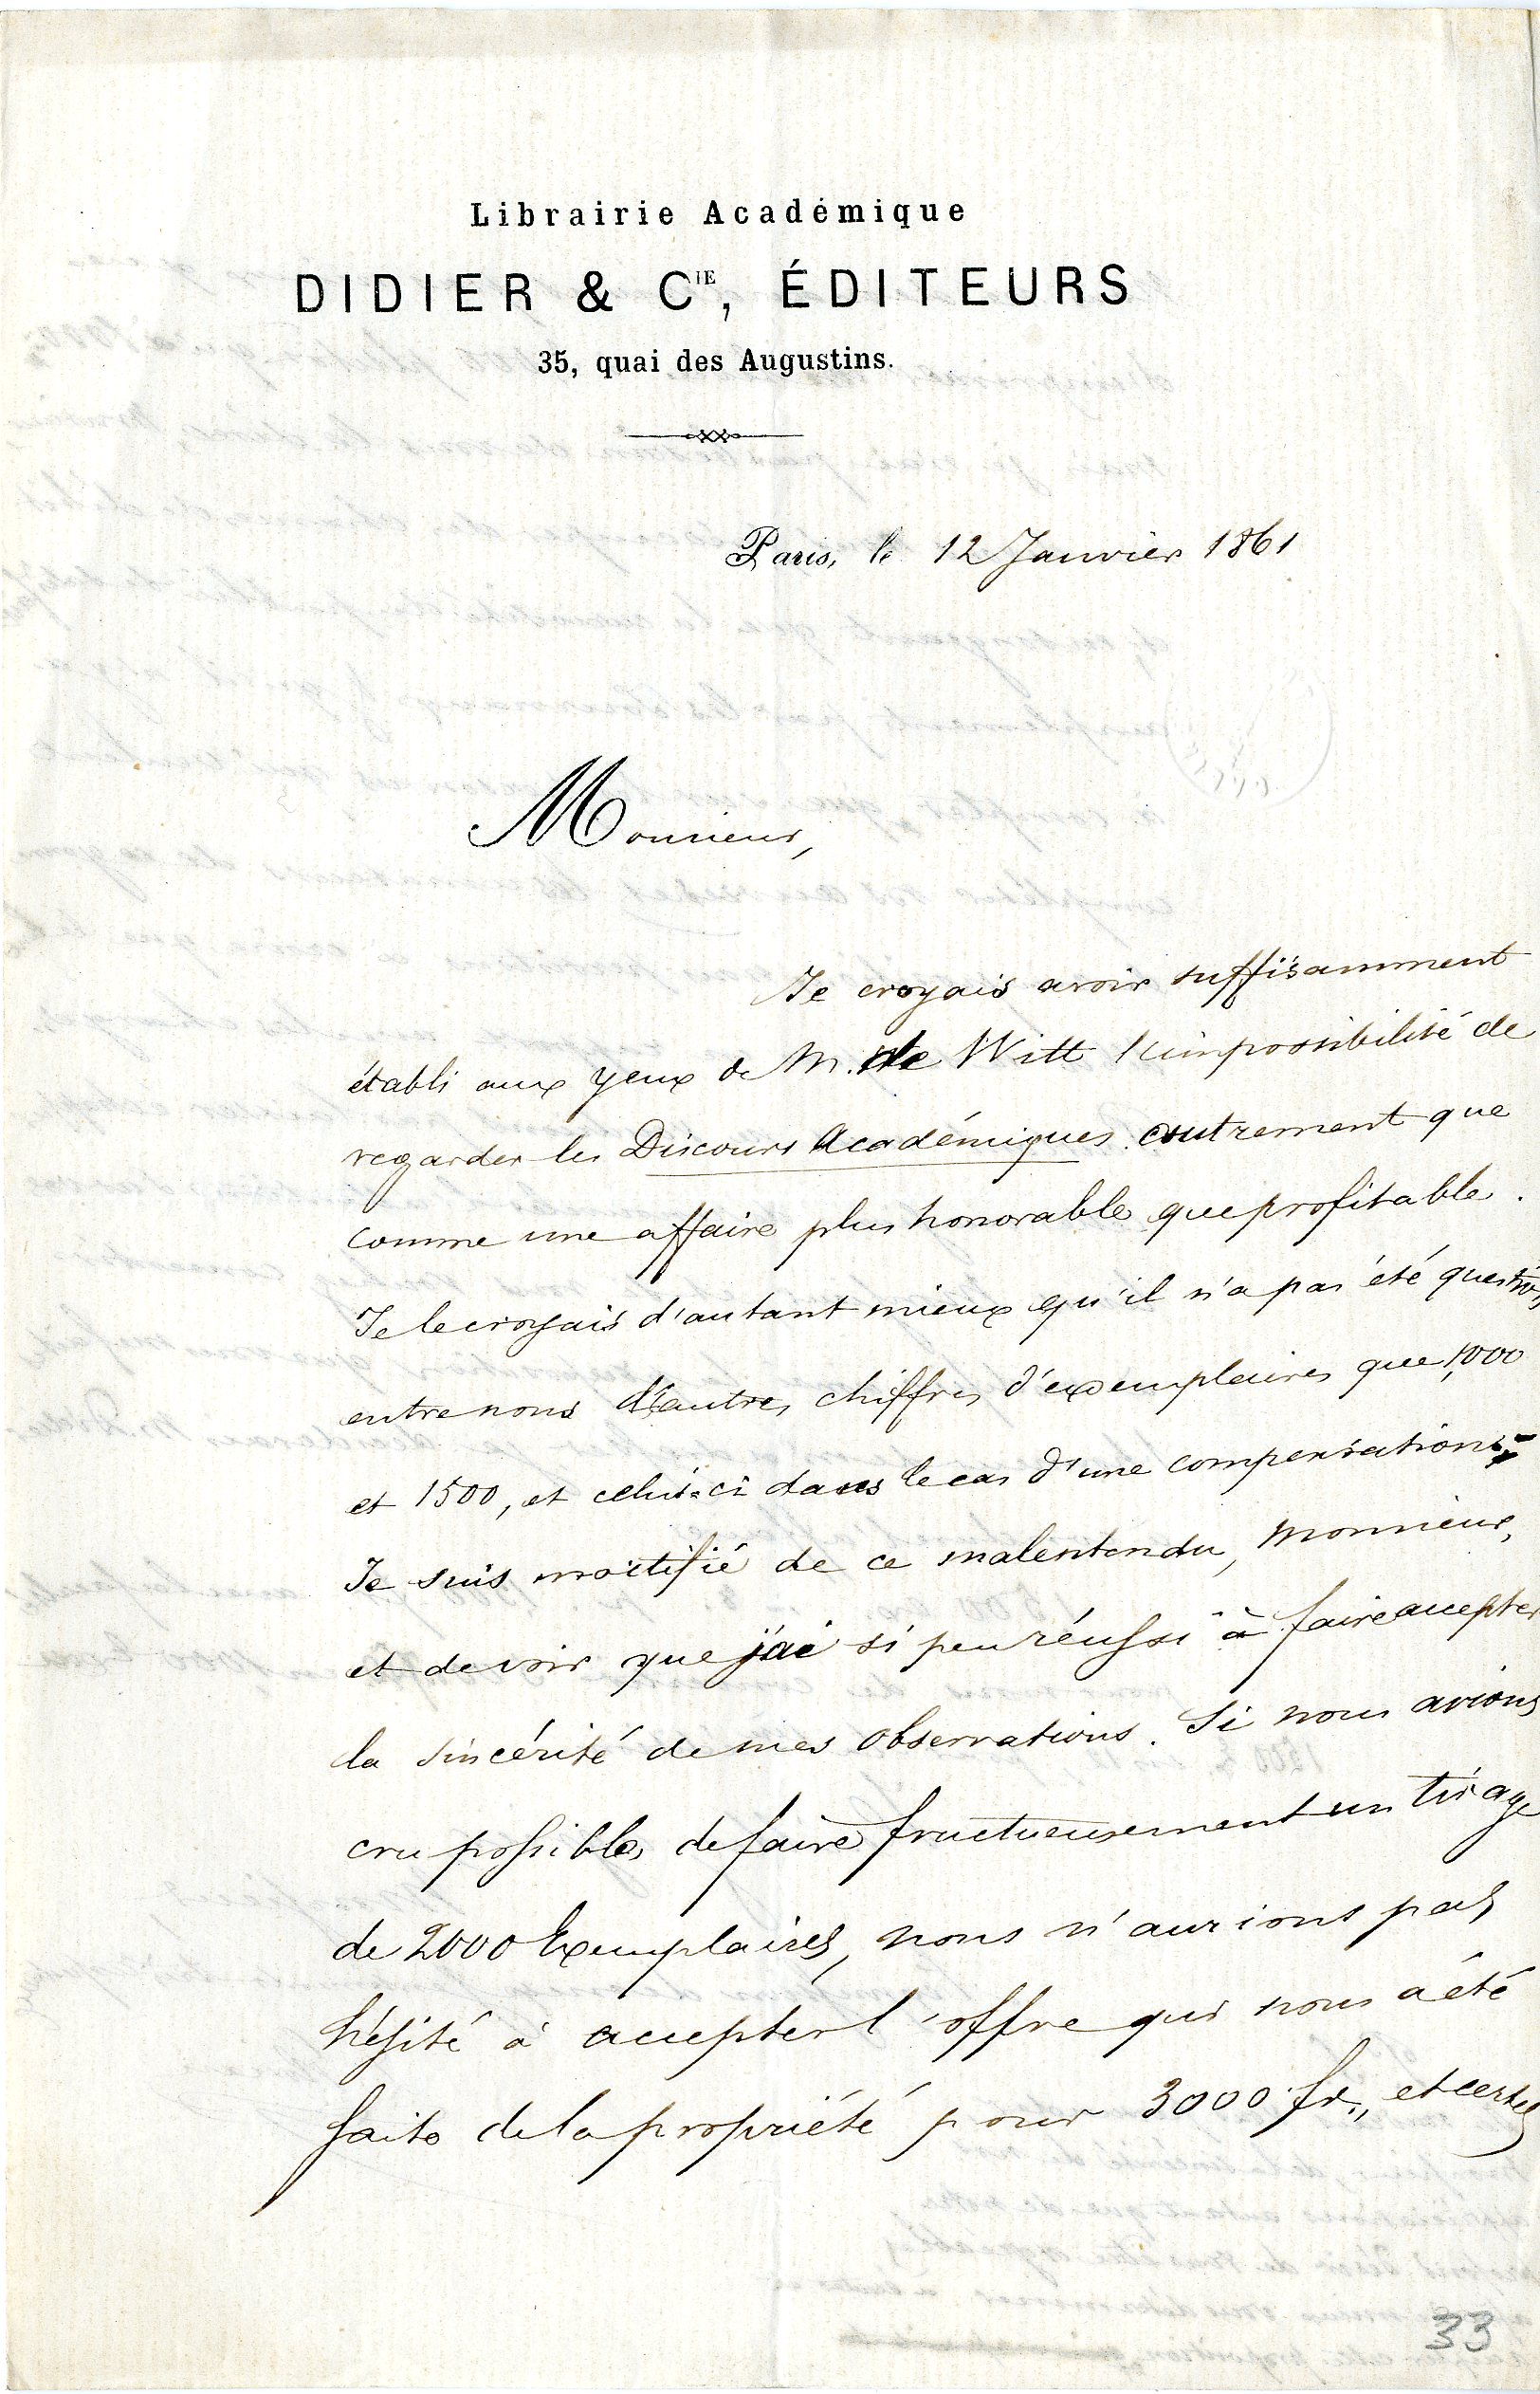 Librairie Académique
DIDIER & CIE, ÉDITEURS
35, quai des Augustins.
Paris, le 12 Janvier 1861
Monsieur,
Je croyais avoir suffisamment
établi aux yeux de M. de Witt l'impossibilité de
regarder les Discours Académiques autrement que
comme une affaire plus honorable que profitable.
Je le croyais d'autant mieux qu'il n'a pas été question
entre nous d'autres chiffres d'exemplaires que 1,000
et 1500, et celui-ci dans le cas d'une compensation.
Je suis mortifié de ce malentendu, Monsieur,
et de voir que j'ai si peu réussi à faire accepter
la sincérité de mes observations. Si nous avions
cru possible de faire fructueusement un tirage
de 2000 Exemplaires, nous n'aurions pas
hésité à accepter l'offre qui nous a été
faite de la propriété pour 3000 fr., et certes
33